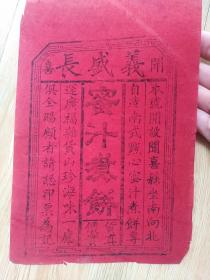 聞喜
義盛長
本號開設聞喜縣坐南向北
自造南式點心蜜汁煮餅等
蜜汁煮餅
運廣福雜貨山珍海味一應
俱全賜顧者請認印票為記